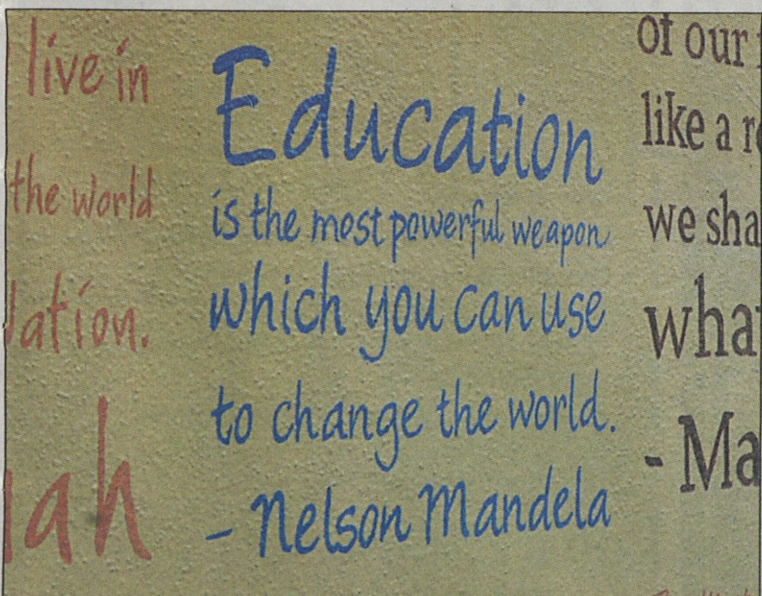 live in
the world
lation.
ah
Education
is the most powerful weapon
which you can use
to change the world.
- Nelson Mandela
of our
like a
we sha
wha
- Ma